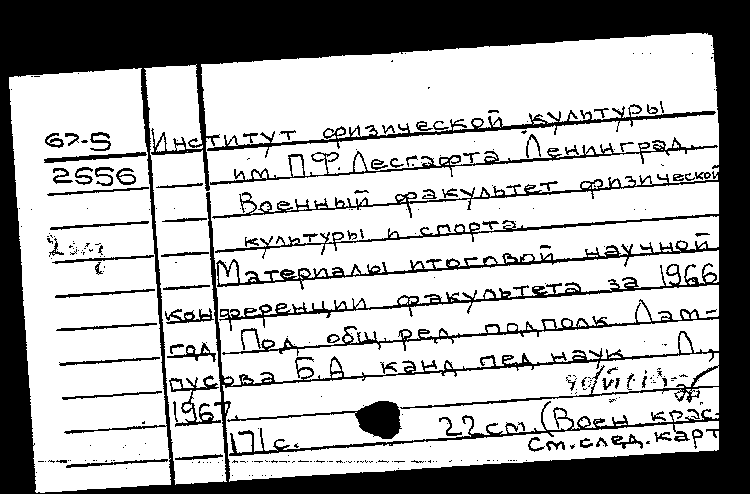 67-5 Институт физической культуры
2556 им. П.Ф. Лесгафта. Ленинград.
Военный факультет физической
2 экз культуры и спорта.
Материалы итоговой научной
конференции факультета за 1966
год. Под общ. ред. подполк. Лам-
пусова Б.А., канд. пед. наук. Л.,
1967.
171 с. 22 см. (Воен. крас-
см. след. карт